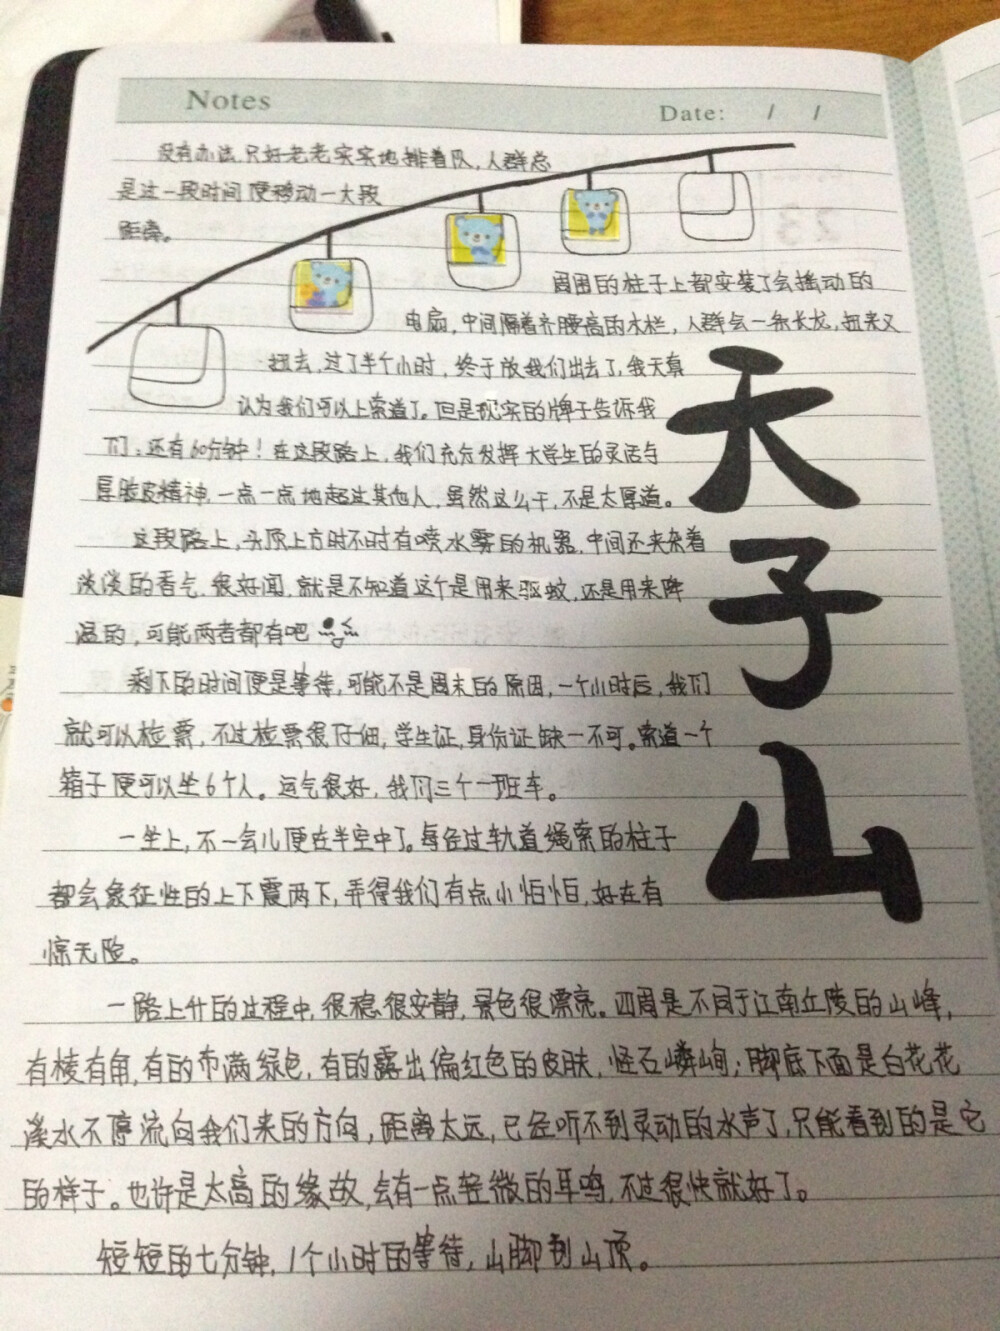 Notes
Date: / /
没有办法,只好老老实实地排着队,人群总
是过一段时间便移动一大段
距离。
周围的柱子上都安装了会摇动的
电扇,中间隔着齐腰高的木栏,人群会一条长龙,扭来又
扭去,过了半个小时,终于放我们出去了,我天真
认为我们可以上索道了。但是现实的牌子告诉我
们:还有60分钟!在这段路上,我们充分发挥大学生的灵活与
厚脸皮精神,一点一点地超过其他人,虽然这么干,不是太厚道。
这段路上,头顶上方时不时有喷水雾的机器,中间还夹杂着
淡淡的香气,很好闻,就是不知道这个是用来驱蚊,还是用来降
温的,可能两者都有吧
剩下的时间便是等待,可能不是周末的原因,一个小时后,我们
就可以检票,不过检票很仔细,学生证,身份证缺一不可。索道一个
箱子便可以坐6个人。运气很好,我们三个一班车。
一坐上,不一会儿便在半空中了。每经过轨道绳索的柱子
都会象征性的上下震两下,弄得我们有点小怕怕,好在有
惊无险。
一路上升的过程中,很稳很安静,景色很漂亮。四周是不同于江南丘陵的山峰,
有棱有角,有的布满绿色,有的露出偏红色的皮肤,怪石嶙峋;脚底下面是白花花
溪水不停流向我们来的方向,距离太远,已经听不到灵动的水声了,只能看到的是它
的样子。也许是太高的缘故,会有一点轻微的耳鸣,不过很快就好了。
短短的七分钟,1个小时的等待,山脚到山顶。
天子山